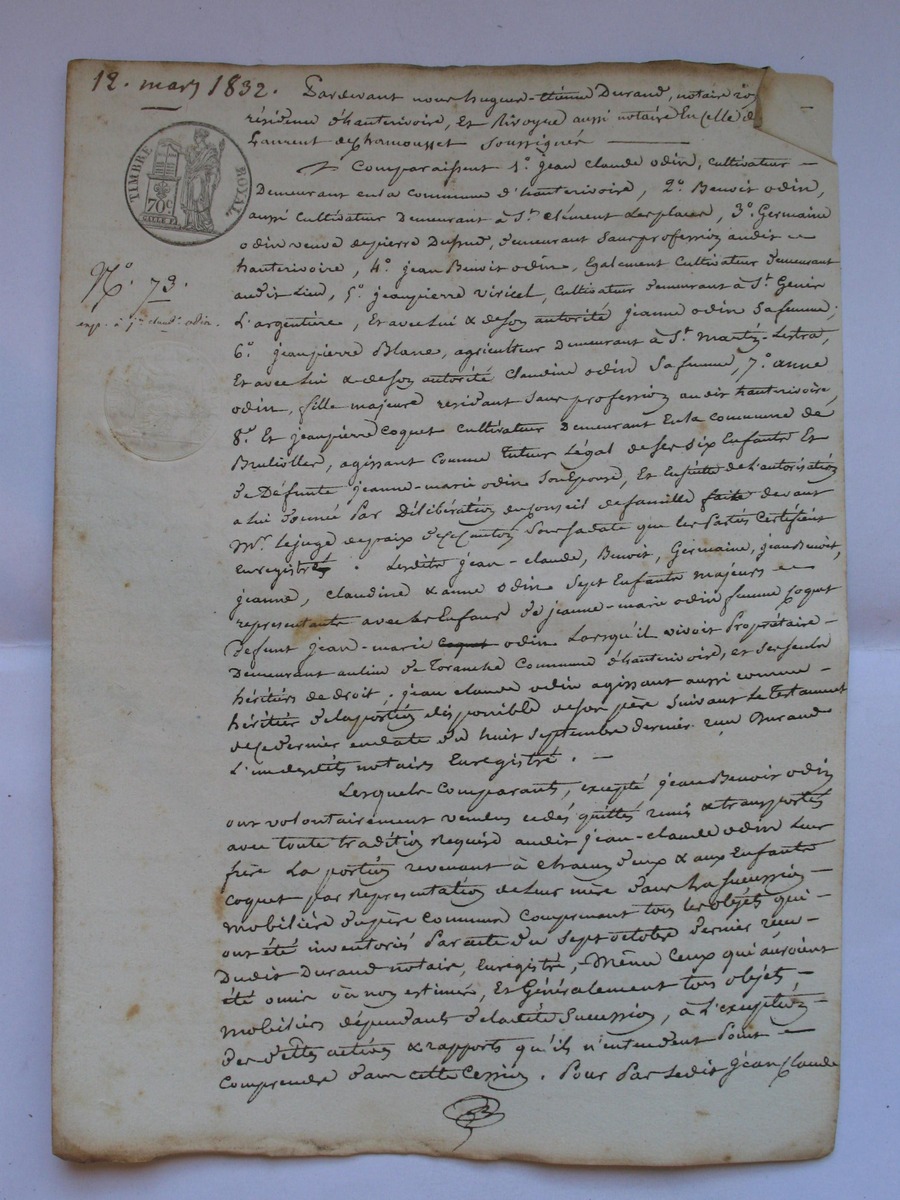 12. mars 1832.
TIMBRE ROYAL
70c
N.° 73.
exp. à j.n claud. odin.
Pardevant nous hugues-étienne Durand, notaire
résidence d'hauterivoire, Et Rivoyre aussi notaire En celle de
Laurent de Chamousset Soussignés
Comparaissent 1.° jean Claude odin, cultivateur
Demeurant en la commune d'hauterivoire, 2.° Benoit odin,
aussi Cultivateur Demeurant à S.t Clément Les places, 3.° Germaine
odin veuve de pierre Dufour, demeurant Sans profession audit
hauterivoire, 4.° jean Benoit odin, Egalement Cultivateur demeurant
audit Lieu, 5.° jeanpierre viricel, Cultivateur demeurant à S.t Genis
L'argentière, Et avec Lui & de Son autorité jeanne odin Sa femme,
6.° jeanpierre Blanc, agriculteur Demeurant à S.t Martin-Lestra,
Et avec Lui & de Son autorité Claudine odin Sa femme, 7.° anne
odin, fille majeure résidant Sans profession audit hauterivoire,
8.° Et jeanpierre Coquet Cultivateur Demeurant En la commune de
Brullioles, agissant Comme Tuteur Légal de Ses Six Enfants Et
de Défunte jeanne-marie odin Son Epouse, Et Ensuite de L'autorisation
a Lui donnée Par Délibération du Conseil de famille faite devant
Mr. Le juge de paix de Ce Canton Sous Sa date que Les Parties Certifient
Enregistrée. Lesdits jean-claude, Benoit, Germaine, jean Benoit,
jeanne, Claudine & anne odin Sept Enfants majeurs
représentants avec Les Enfans de jeanne-marie odin femme Coquet
Défunt jean-marie Coquet odin Lorsqu'il vivoit Propriétaire
Demeurant au lieu de Toranche Commune d'hauterivoire, et Ses Seuls
héritiers de droit, jean claude odin agissant aussi Comme
héritier de la portion disponible de Son père Suivant Le Testament
de Ce dernier en date du huit Septembre dernier reçu Durand
L'un desdits notaires Enregistré.
Lesquels-Comparants, excepté jean Benoit odin
ont volontairement vendu cédés quittés remis & transportés
avec toute tradition Requise audit jean-claude odin Leur
frère La portion revenant à Chacun d'eux & aux Enfants
Coquet par Représentation de Leur mère dans La Succession
mobilière du père commun Comprenant tous les objets qui
ont été inventoriés Par acte du Sept octobre dernier reçu
Dudit Durand notaire, Enregistré, Même Ceux qui auroient
été omis où non estimés, Et Généralement tous objets
mobiliers dépendants de ladite Succession, à L'exception
des dettes actives & rapports qu'ils n'entendent Point
Comprendre dans cette Cession. Pour Par Ledit Jean Claude